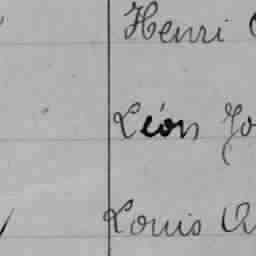 Henri
Léon Jo
Louis A